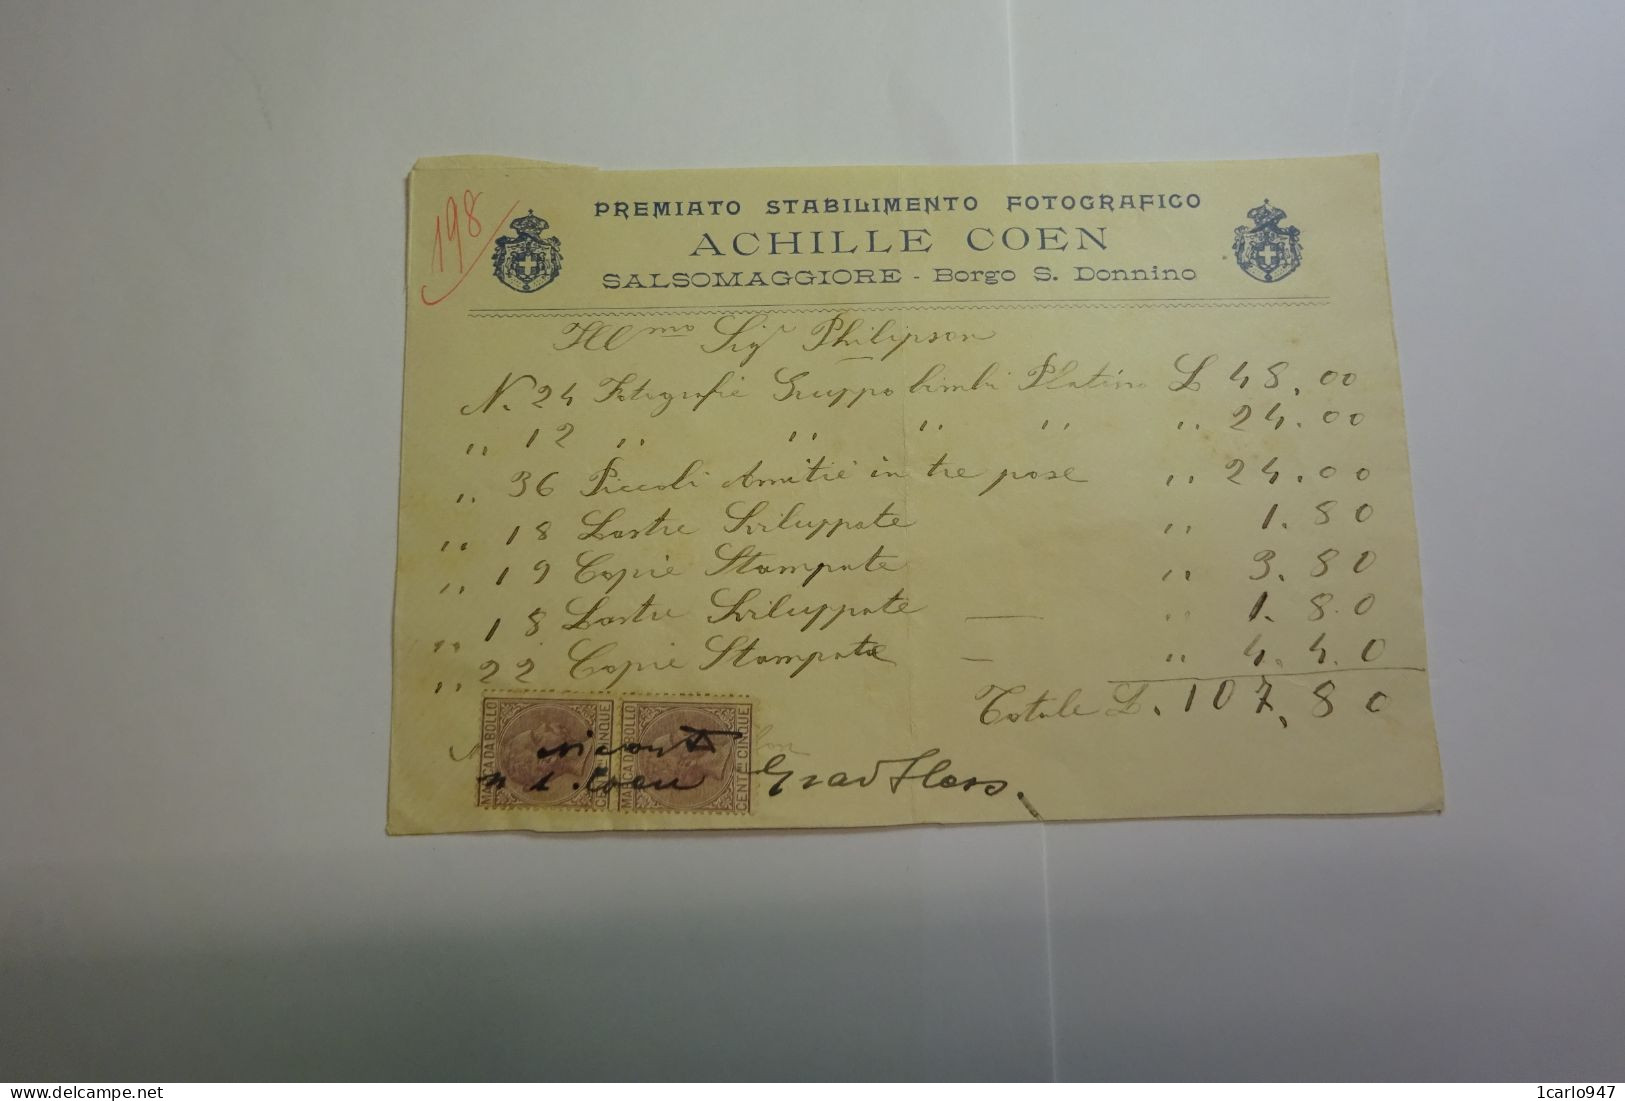 198
PREMIATO STABILIMENTO FOTOGRAFICO
ACHILLE COEN
SALSOMAGGIORE - Borgo S. Donnino
Ill.mo Sigr Philipson
N. 24 Fotografie Gruppo bimbi Platino L 48.00
,, 12 ,, ,, ,, ,, ,, 24.00
,, 36 Piccoli in tre pose ,, 24.00
,, 18 Lastre Sviluppate ,, 1.80
,, 19 Copie Stampate ,, 3.80
,, 18 Lastre Sviluppate — ,, 1.80
,, 22 Copie Stampate — ,, 4.40
Totale L. 107.80
MARCA DA BOLLO CENT.MI CINQUE
MARCA DA BOLLO CENT.MI CINQUE
Coen
delcampe.net
1carlo947